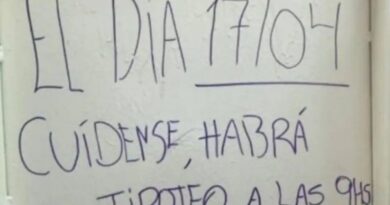 EL DIA 17/04
CUÍDENSE, HABRÁ
TIROTEO A LAS 9HS